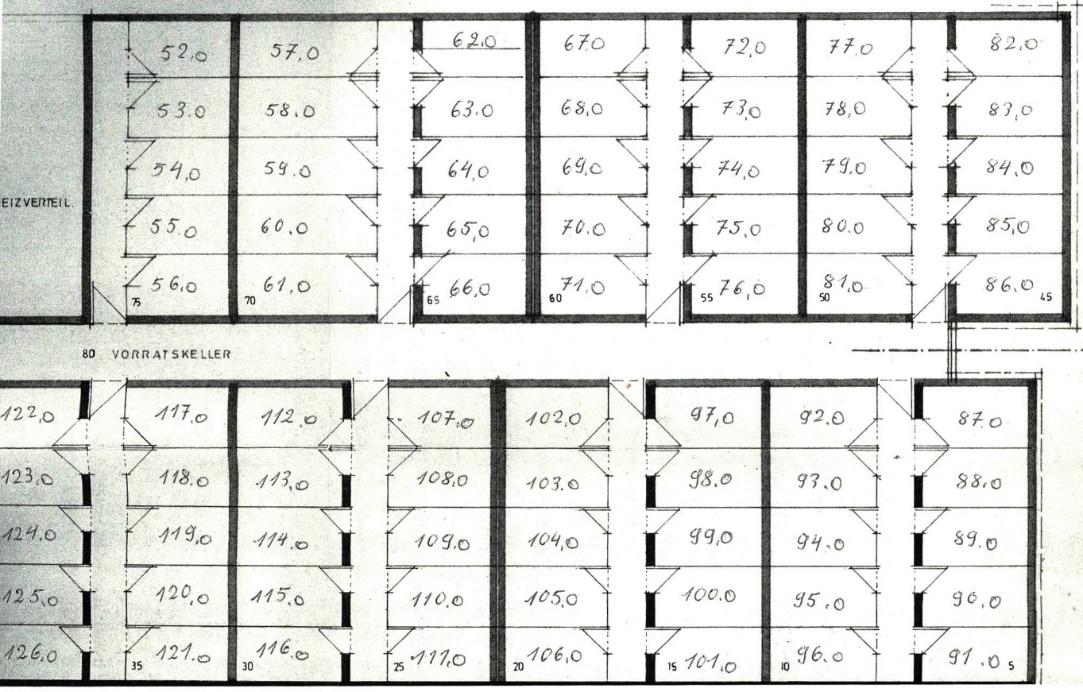 52.0 57.0 62.0 67.0 72.0 77.0 82.0
53.0 58.0 63.0 68.0 73.0 78.0 83.0
54.0 59.0 64.0 69.0 74.0 79.0 84.0
EIZVERTEIL. 55.0 60.0 65.0 70.0 75.0 80.0 85.0
56.0 61.0 66.0 71.0 76.0 81.0 86.0
75 70 65 60 55 50 45
80 VORRATSKELLER
122.0 117.0 112.0 107.0 102.0 97.0 92.0 87.0
123.0 118.0 113.0 108.0 103.0 98.0 93.0 88.0
124.0 119.0 114.0 109.0 104.0 99.0 94.0 89.0
125.0 120.0 115.0 110.0 105.0 100.0 95.0 90.0
126.0 121.0 116.0 111.0 106.0 101.0 96.0 91.0
35 30 25 20 15 10 5